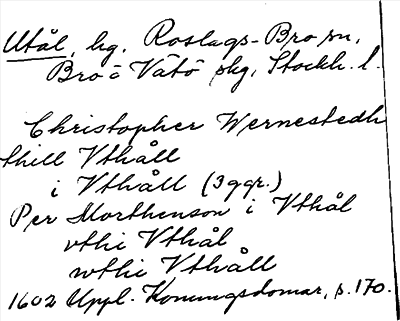 Utål, hg. Roslags-Bro sn,
Bro o Vätö skg, Stockh. l.
Christopher Wernestedh
thill Vthåll
i Vthåll (3 ggr.)
Per Morthenson i Vthål
vthi Vthål
wthi Vthåll
1602 Uppl. Konungsdomar, s. 170.